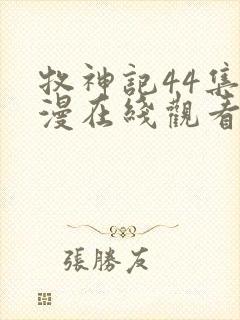 牧神記44集
漫在綫觀看
張勝友